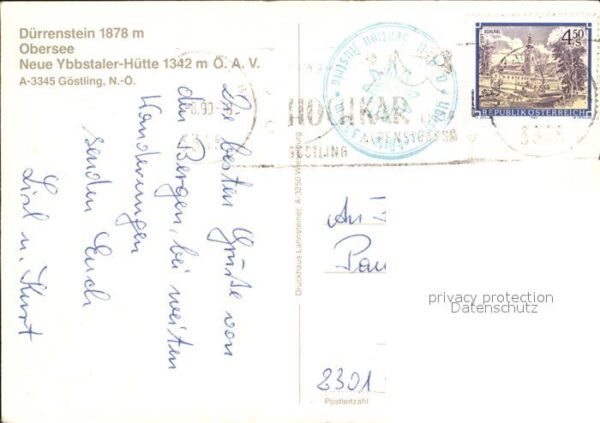 Dürrenstein 1878 m
Obersee
Neue Ybbstaler-Hütte 1342 m Ö. A. V.
A-3345 Göstling, N.-Ö.
Die besten Grüße von
den Bergen, bei weiten
Wanderungen
senden Euch
Lisl u. Kurt
HOCHKAR
ALPENSTRASSE
GÖSTLING
4.50
S
REPUBLIK ÖSTERREICH
Druckhaus Lahnsteiner, A-3250 Wieselburg
An
2301
Postleitzahl
privacy protection
Datenschutz